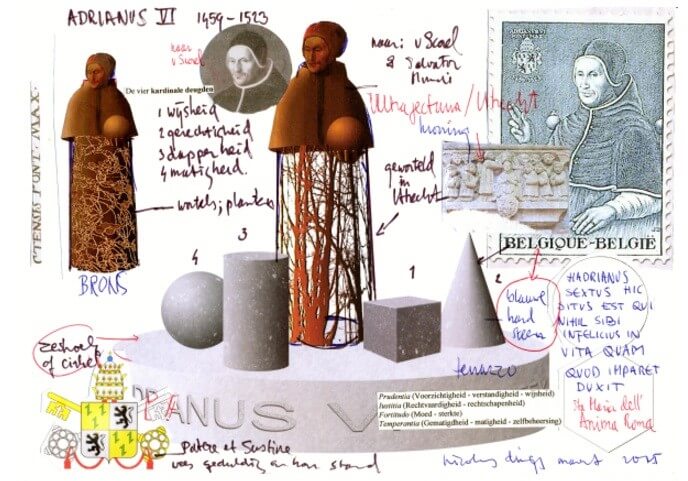 ADRIANUS VI 1459-1523
naar
v Scorel
naar: v Scorel
& Salvator
Mundi
De vier kardinale deugden
1 wijsheid
2 gerechtigheid
3 dapperheid
4 matigheid
wortels; planten
BRONS
CTENSIS PONT. MAX.
Ultrajectum/Utrecht
woning
geworteld
in
Utrecht
BELGIQUE-BELGIË
4
3
1
2
blauwe
hard
steen
HADRIANUS
SEXTUS HIC
SITUS EST QUI
NIHIL SIBI
INFELICIUS IN
VITA QUAM
QUOD IMPARET
DUXIT
Sta Maria dell'
Anima Roma
zeshoek
of cirkel
terrazzo
ANUS V
Prudentia (Voorzichtigheid - verstandigheid - wijsheid)
Iustitia (Rechtvaardigheid - rechtschapenheid)
Fortitudo (Moed - sterkte)
Temperantia (Gematigdheid - matigheid - zelfbeheersing)
Patere et Sustine
wees geduldig en hou stand
nicolas dings maart 2025